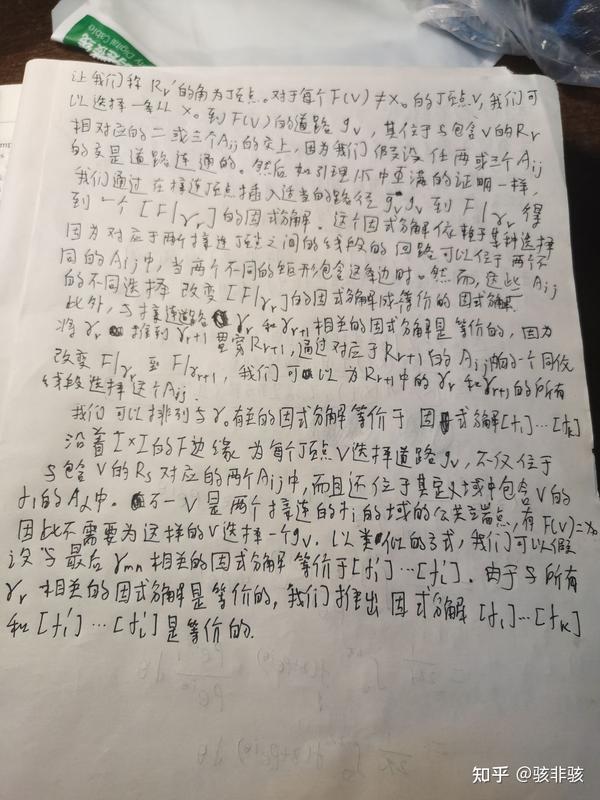 Digital Cable
让我们称 Rr'的角为顶点。对于每个 F(V) ≠ X₀ 的顶点V,我们可
以选择一条从 X₀ 到 F(V) 的道路 gv,其位于与包含 V 的 Rr
相对应的二或三个Aij的交上,因为我们假设任两或三个Aij
的交是道路连通的。然后如引理1.15中直满的证明一样,
我们通过在接连顶点插入适当的路径 ḡv gv 到 F|γr 得
到一个 [F|γr] 的因式分解。这个因式分解依赖于某种选择
因为对应于两个接连顶点之间的线段的回路可以位于两个不
同的Aij中,当两个不同的矩形包含这条边时。然而,这些 Aij
的不同选择 改变 [F|γr] 的因式分解成等价的因式分解.
此外,与接连道路 γr 和 γr+1 相关的因式分解是等价的,因为
将 γr 推到 γr+1 里穿 Rr+1,通过对应于Rr+1的 Aij 的一个同伦
改变 F|γr 至 F|γr+1,我们可以为Rr+1中的 γr 和 γr+1 的所有
线段选择这个Aij.
我们可以排列与 γ₀ 有关的因式分解等价于 因式分解[f₁]…[fk]
沿着 I×I 的下边缘 为每个顶点V选择道路 gv,不仅位于
与包含 V 的 Rs 对应的两个Aij中,而且还位于其定义域中包含 V 的
f₁的 Aα中。 V 是两个接连的fi的域的公共端点,有 F(V)=X₀
因此不需要为这样的V选择一个gv. 以类似的方式,我们可以假
设 与最后 γmn 相关的因式分解 等价于[f₁']…[fi']. 由于与所有
γr 相关的因式分解是等价的,我们推出 因式分解 [f₁]…[fk]
和 [f₁']…[fi'] 是等价的.
知乎 @骇非骇